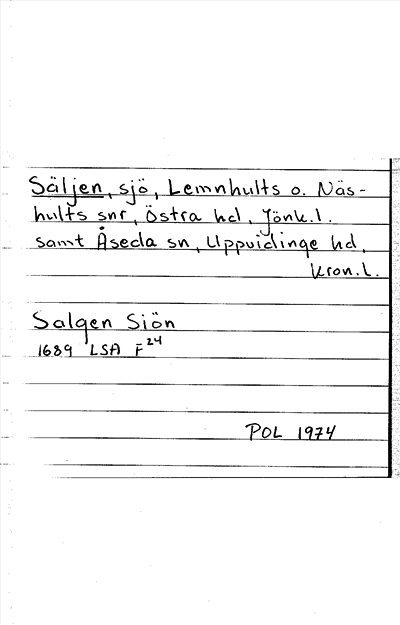 Säljen, sjö, Lemnhults o. Näs-
hults snr, Östra hd, Jönk.l.
samt Åseda sn, Uppvidinge hd,
Kron.l.
Salgen Siön
1689 LSA F24
POL 1974